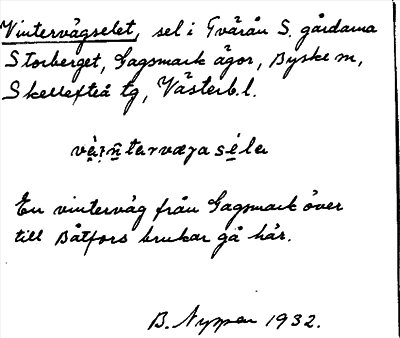 Vintervägselet, sel i Tvärån S. gårdarna
Storberget, Gagsmark ägor, Byske sn,
Skellefteå tg, Västerb. l.
En vinterväg från Gagsmark över
till Båtfors brukar gå här.
B. Nyman 1932.